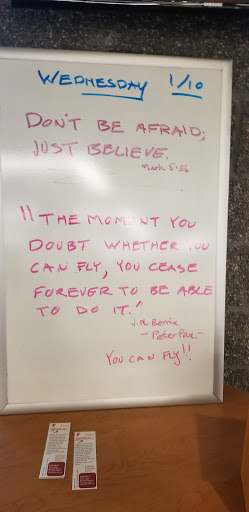 WEDNESDAY 1/10
DON'T BE AFRAID;
JUST BELIEVE.
Mark 5:36
"THE MOMENT YOU
DOUBT WHETHER YOU
CAN FLY, YOU CEASE
FOREVER TO BE ABLE
TO DO IT."
J.M. Berrie
- Peter Pan -
YOU CAN FLY!!